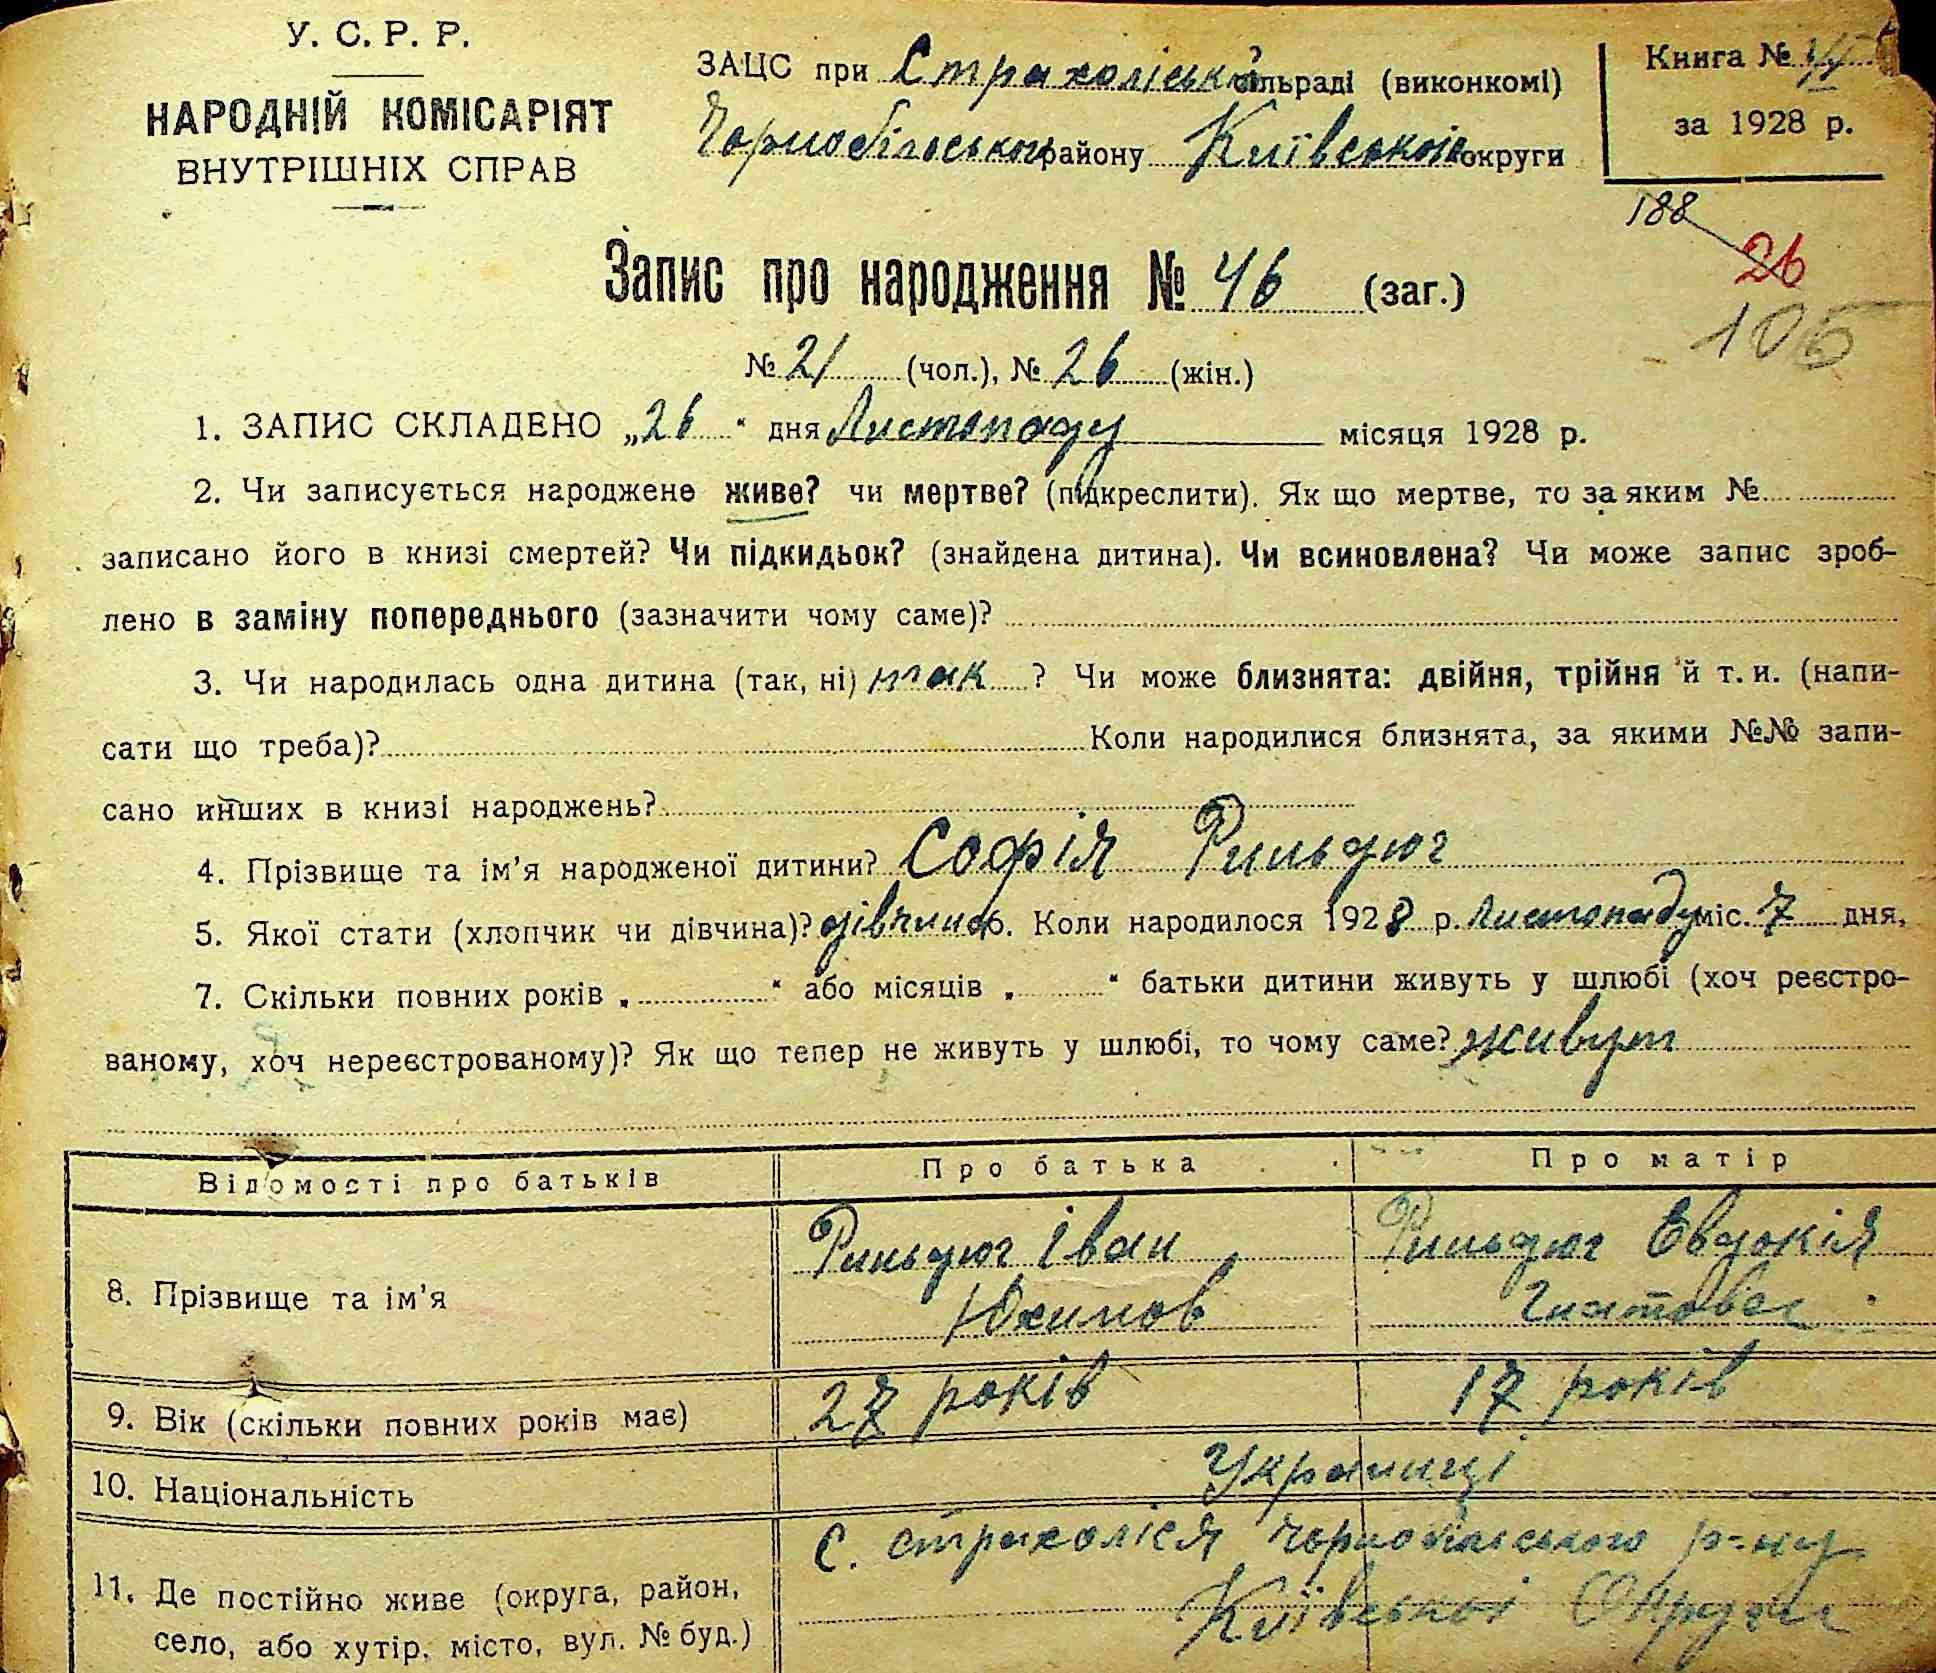 У. С. Р. Р.
НАРОДНІЙ КОМІСАРІЯТ
ВНУТРІШНІХ СПРАВ
ЗАЦС при Страхоліській сільраді (виконкомі)
Чорнобільського району Київської округи
Книга №
за 1928 р.
188
26
105
Запис про народження № 46 (заг.)
№ 21 (чол.), № 26 (жін.)
1. ЗАПИС СКЛАДЕНО „26“ дня Листопаду місяця 1928 р.
2. Чи записується народжене живе? чи мертве? (підкреслити). Як що мертве, то за яким №
записано його в книзі смертей? Чи підкидьок? (знайдена дитина). Чи всиновлена? Чи може запис зроб-
лено в заміну попереднього (зазначити чому саме)?
3. Чи народилась одна дитина (так, ні) так ? Чи може близнята: двійня, трійня й т. и. (напи-
сати що треба)? Коли народилися близнята, за якими №№ запи-
сано инших в книзі народжень?
4. Прізвище та ім’я народженої дитини? Софія Рильдюг
5. Якої стати (хлопчик чи дівчина)? дівчина 6. Коли народилося 1928 р. Листопаду міс. 7 дня,
7. Скільки повних років „ “ або місяців „ “ батьки дитини живуть у шлюбі (хоч реєстро-
ваному, хоч нереєстрованому)? Як що тепер не живуть у шлюбі, то чому саме? живут
Відомості про батьків Про батька Про матір
8. Прізвище та ім’я Рильдюг Іван Рильдюг Евдокія
Юхимов
9. Вік (скільки повних років має) 27 років 17 років
10. Національність Украинці
11. Де постійно живе (округа, район, с. Страхолісся Чорнобільського р-ну
село, або хутір, місто, вул. № буд.) Київської Округи